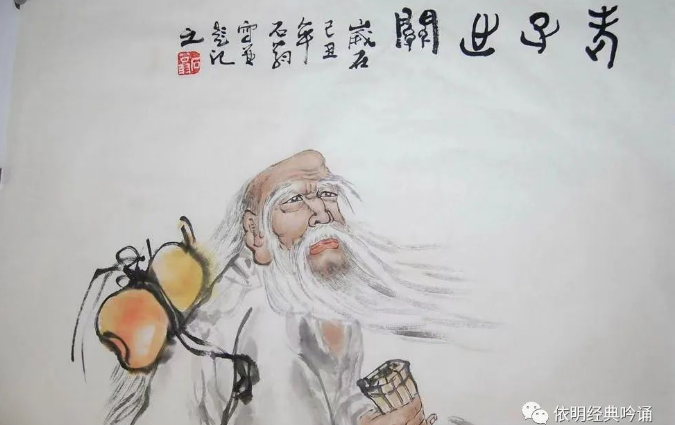 老子出關
歲在
己丑
年
石翁
題記
之
依明经典吟诵